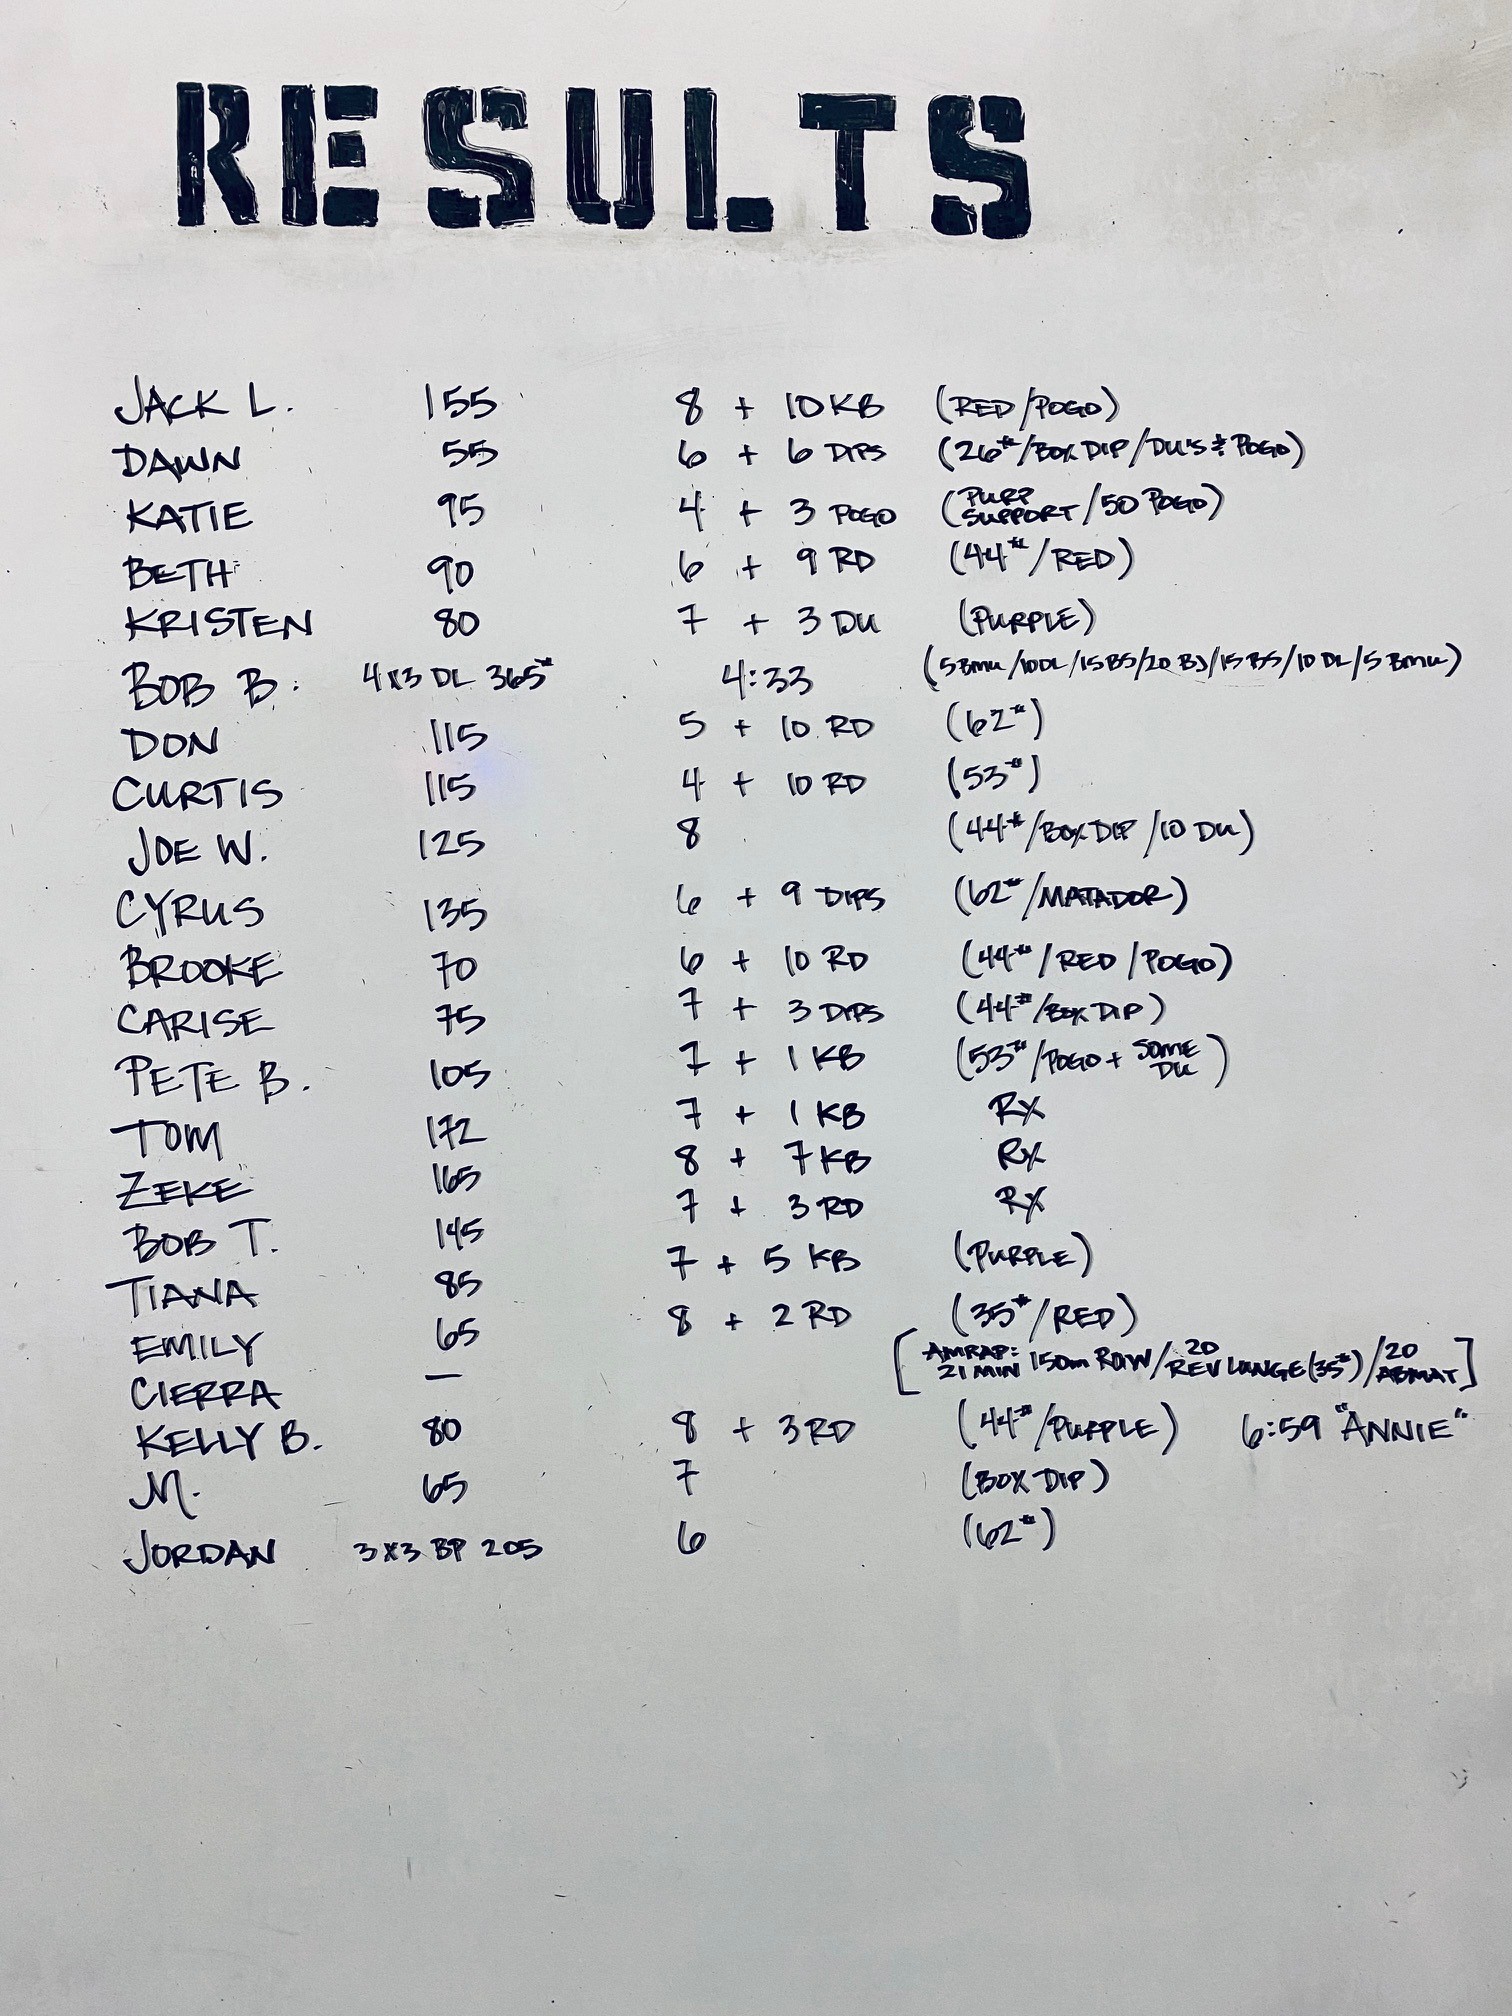 RESULTS
JACK L. 155 8 + 10 KB (RED/POGO)
DAWN 55 6 + 6 DIPS (26#/BOX DIP/DU'S & POGO)
KATIE 95 4 + 3 POGO (PURP SUPPORT/50 POGO)
BETH 90 6 + 9 RD (44#/RED)
KRISTEN 80 7 + 3 DU (PURPLE)
BOB B. 4x3 DL 365# 4:33 (5 BMU/10 DL/15 BS/20 BJ/15 BS/10 DL/5 BMU)
DON 115 5 + 10 RD (62#)
CURTIS 115 4 + 10 RD (53#)
JOE W. 125 8 (44#/BOX DIP/10 DU)
CYRUS 135 6 + 9 DIPS (62#/MATADOR)
BROOKE 70 6 + 10 RD (44#/RED/POGO)
CARISE 75 7 + 3 DIPS (44#/BOX DIP)
PETE B. 105 7 + 1 KB (53#/POGO + SOME DU)
TOM 172 7 + 1 KB RX
ZEKE 165 8 + 7 KB RX
BOB T. 145 7 + 3 RD RX
TIANA 85 7 + 5 KB (PURPLE)
EMILY 65 8 + 2 RD (35#/RED)
CIERRA — [AMRAP: 21 MIN 150m ROW/20 REV LUNGE (35#)/20 ABMAT]
KELLY B. 80 8 + 3 RD (44#/PURPLE) 6:59 "ANNIE"
M. 65 7 (BOX DIP)
JORDAN 3x3 BP 205 6 (62#)